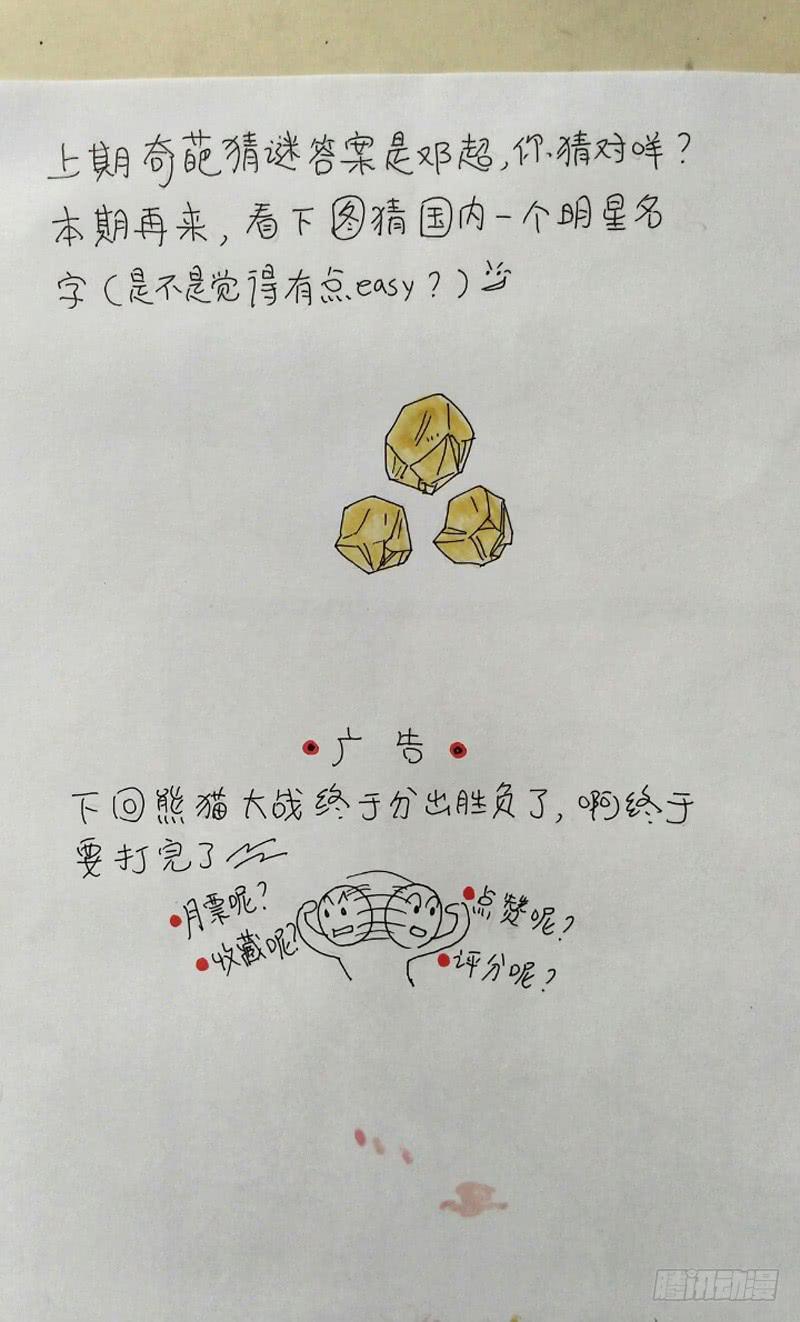 上期奇葩猜谜答案是邓超,你猜对咩?
本期再来,看下图猜国内一个明星名
字(是不是觉得有点easy?)
广告
下回熊猫大战终于分出胜负了,啊终于
要打完了
月票呢?
收藏呢?
点赞呢?
评分呢?
腾讯动漫